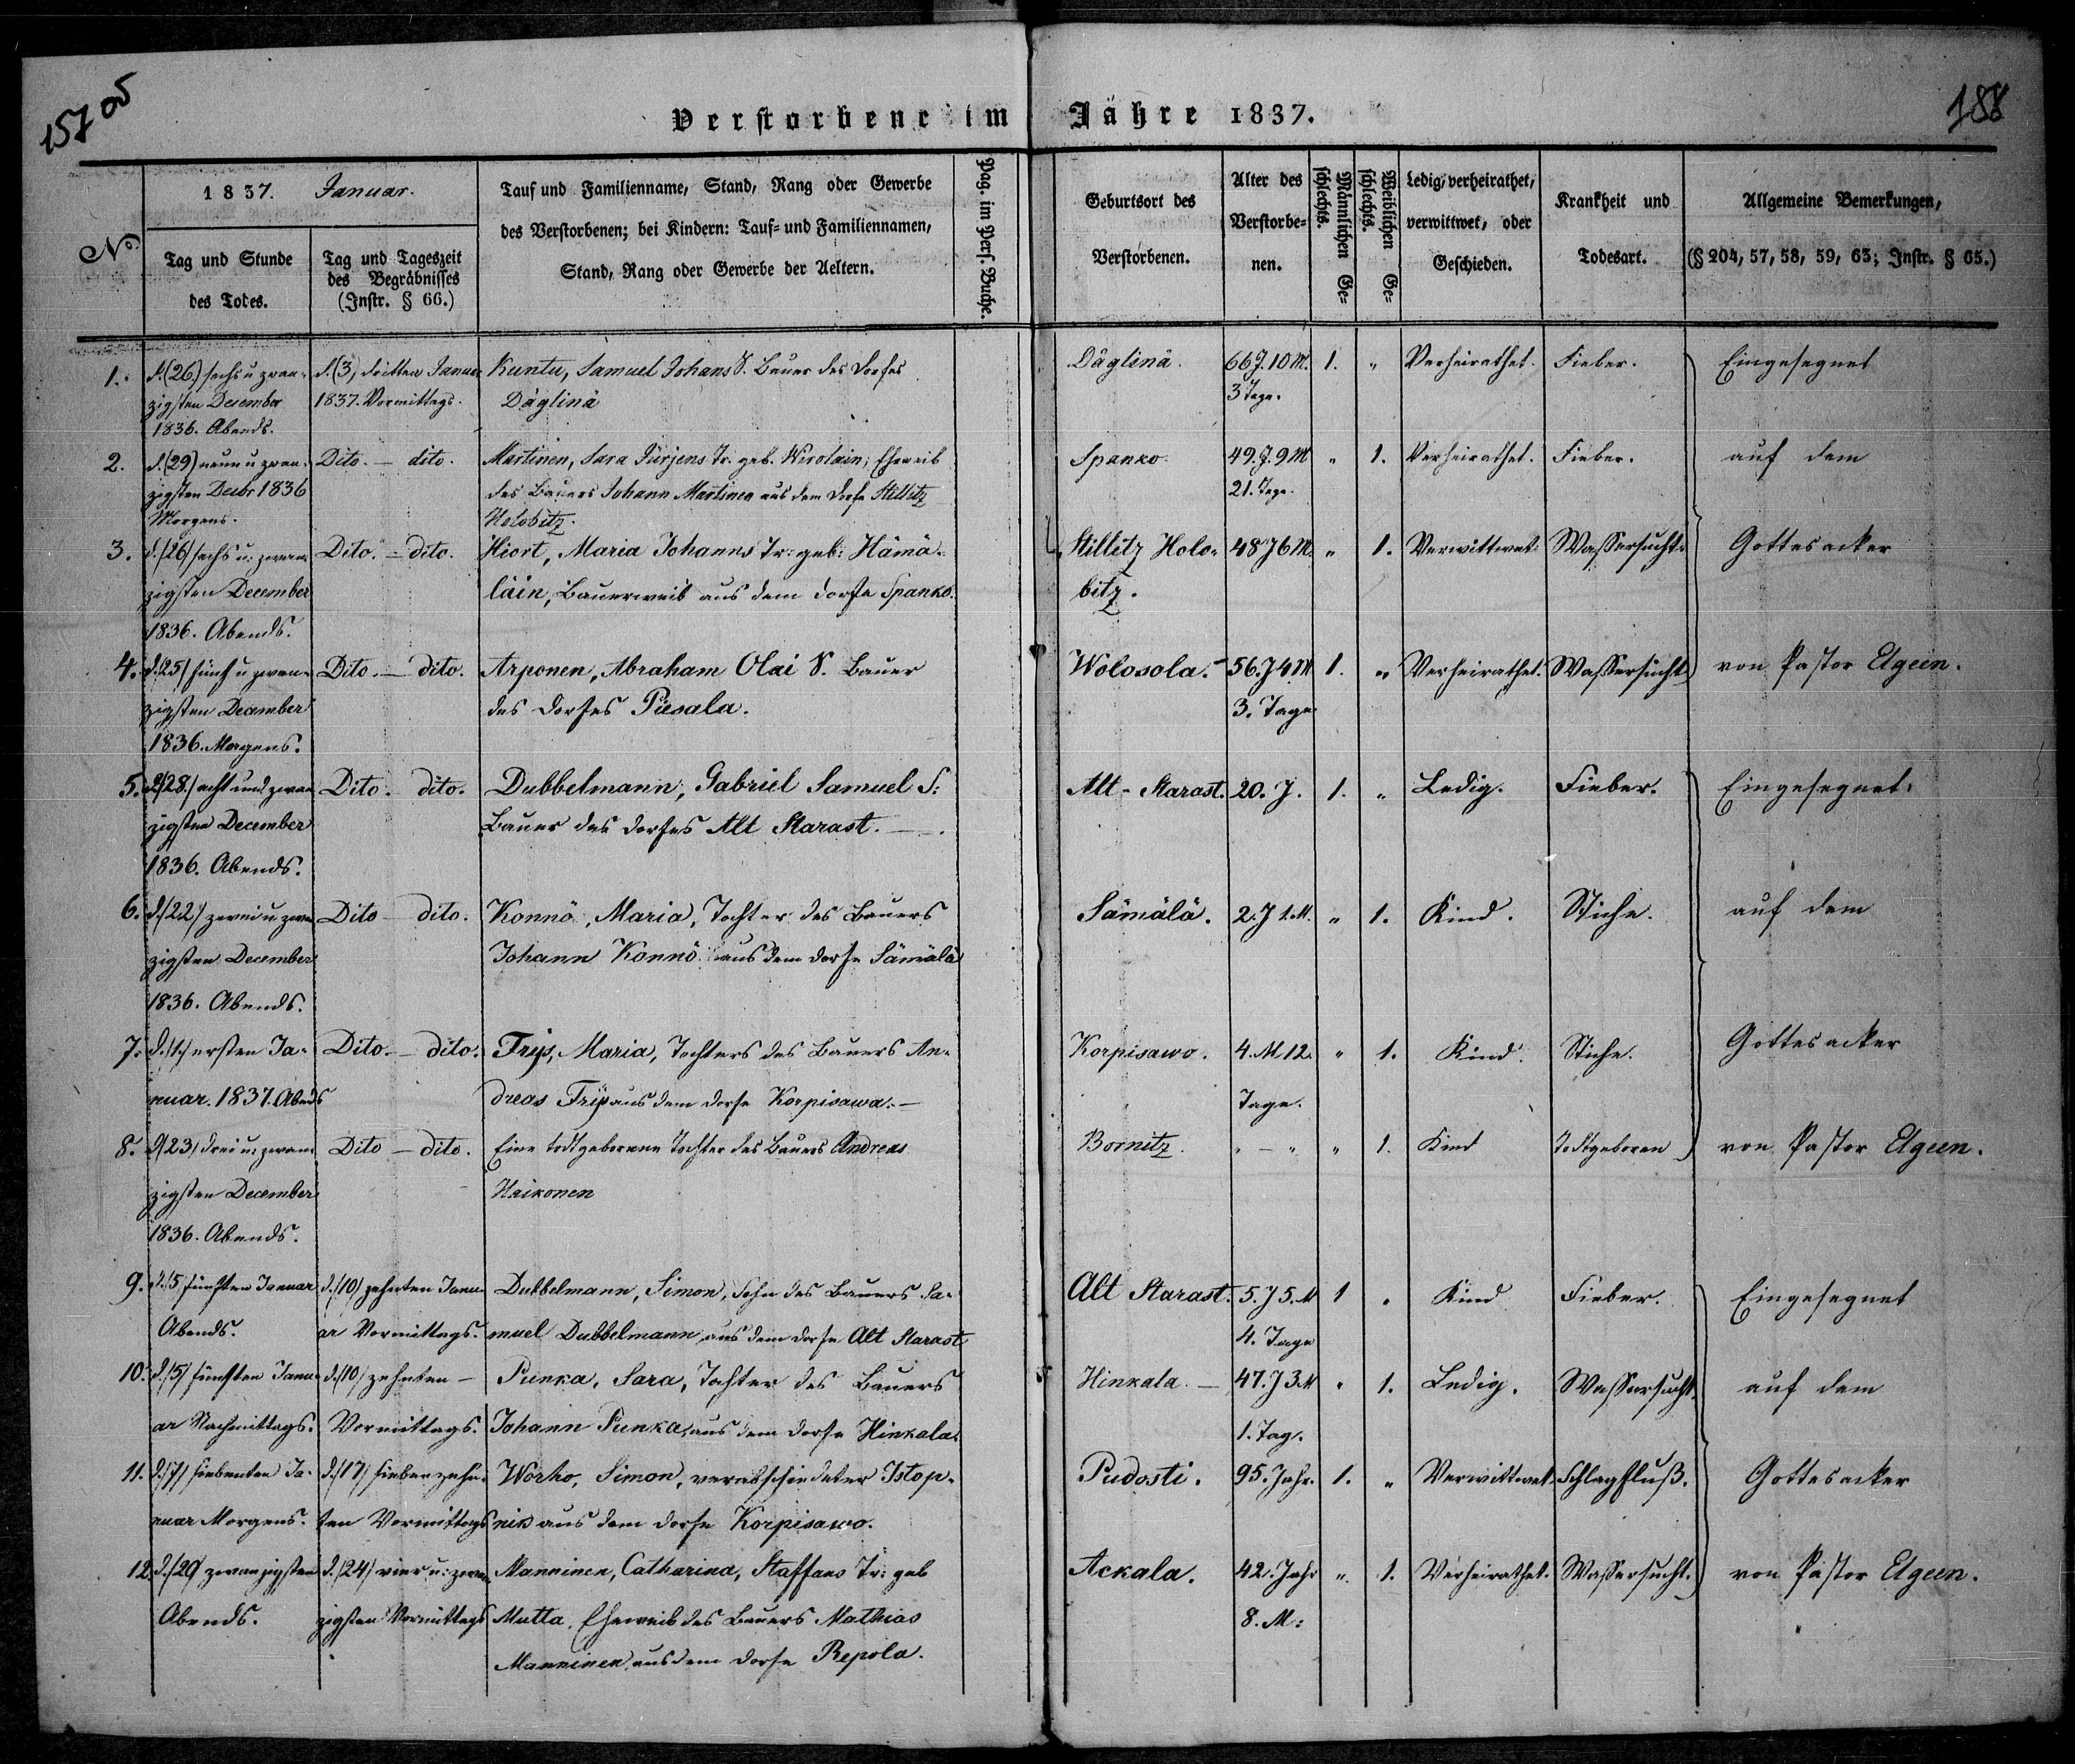 157 об
188
Verstorbene im Jahre 1837.
No.
1837. Januar.
Tag und Stunde
des Todes.
Tag und Tageszeit
des Begräbnisses
(Instr. § 66.)
Tauf und Familienname, Stand, Rang oder Gewerbe
des Verstorbenen; bei Kindern: Tauf- und Familiennamen,
Stand, Rang oder Gewerbe der Aeltern.
Pag. im Pers. Buche.
Geburtsort des
Verstorbenen.
Alter des
Verstorbe-
nen.
Männlichen Ge-
schlechts.
Weiblichen Ge-
schlechts.
Ledig, verheirathet,
verwittwet, oder
Geschieden.
Krankheit und
Todesart.
Allgemeine Bemerkungen,
(§ 204, 57, 58, 59, 63; Instr. § 65.)
1. d. (26) sechs u zwan- d. (3) dritten Januar Kuntu, Samuel Johans S. Bauer des Dorfes Däglinä. 66 J. 10 M. 1. " Verheirathet. Fieber. Eingesegnet
zigsten December 1837. Vormittags. Däglinä 3 Tage.
1836. Abends.
2. d. (29) neun u zwan- Dito. — dito. Martinen, Sara Jürjens Tr. geb. Wirolain, Eheweib Spanko 49. J. 9 M " 1. Verheirathet. Fieber. auf dem
zigsten Decbr 1836 des Bauers Johann Martinen aus dem Dorfe Stillitz 21. Tage.
Morgens. Holobitz.
3. d. (26) sechs u: zwan- Dito. — dito. Hiort, Maria Johanns Tr: geb: Hämä- Stillitz Holo- 48 J 6 M. " 1. Verwittwet. Wassersucht. Gottesacker
zigsten December läin, Bauerweib aus dem Dorfe Spanko. bitz.
1836. Abends.
4. d. (25) fünf u zwan- Dito. — dito. Arponen, Abraham Olai S. Bauer Wolosola. 56. J 4 M 1. " Verheirathet. Wassersucht von Pastor Elgeen.
zigsten December des Dorfes Piesala. 3. Tage
1836. Morgens.
5. d. (28.) acht und zwan- Dito. dito. Dubbelmann, Gabriel Samuel S: Alt-Starast. 20. J. 1. " Ledig. Fieber. Eingesegnet.
zigsten December Bauer des Dorfes Alt Starast. —
1836. Abends.
6. d. (22) zwei u zwan- Dito — dito. Konnö, Maria, Tochter des Bauers Sämälä. 2. J 1. M. " 1. Kind. Stiche. auf dem
zigsten December Johann Konnö aus dem Dorfe Sämälä
1836. Abends.
7. d. (1.) ersten Ja- Dito. — dito. Trÿs, Maria, Tochters des Bauers An- Korpisawo. 4. M 12. " 1. Kind. Stiche. Gottesacker
nuar. 1837. Abends dreas Trÿs aus dem Dorfe Korpisawa. — Tage.
8. d. (23) drei u: zwan- Dito — dito. Eine todtgeborene Tochter des Bauers Andreas Bornitz. " — " " 1. Kind Todtgeboren von Pastor Elgeen.
zigsten December Haikonen
1836. Abends.
9. d. (5 fünften Januar d. (10) zehnten Janu- Dubbelmann, Simon, Sohn des Bauers Sa- Alt Starast. 5. J 5. M 1 " Kind Fieber. Eingesegnet
Abends. ar Vormittags. muel Dubbelmann aus dem Dorfe Alt Starast 4. Tage
10. d. (5) fünften Janu- d. (10) zehnten — Punka, Sara, Tochter des Bauers Hinkala. — 47. J 3. M " 1. Ledig. Wassersucht. auf dem
ar Nachmittags. Vormittags. Johann Punka, aus dem Dorfe Hinkala. 1. Tag.
11. d. (7) siebenten Ja- d. (17) siebenzehn- Worho, Simon, verabschiedeter Istop- Pudosti. 95. Jahr. 1. " Verwittwet Schlagfluß. Gottesacker
nuar Morgens. ten Vormittags nik aus dem Dorfe Korpisawo.
12. d. (20) zwanzigsten d. (24) vier u: zwan- Manninen, Catharina, Staffans Tr: geb Ackala. 42. Jahr " 1. Verheirathet. Wassersucht. von Pastor Elgeen.
Abends. zigsten Vormittags Mutta, Eheweib des Bauers Mathias 8. M:
Manninen aus dem Dorfe Repola.